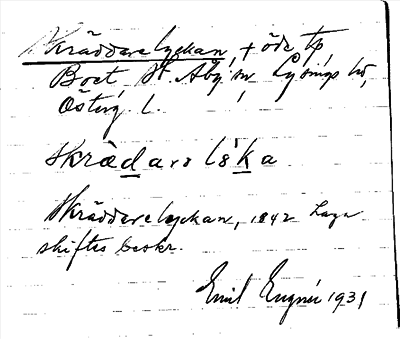 Skräddarelyckan, + öde tp
Boet St. Åby sn Lysings hd,
Östergl.
skrädarələ̀ka
Skräddarelyckan, 1842 Laga
skiftes beskr.
Emil Engnér 1931